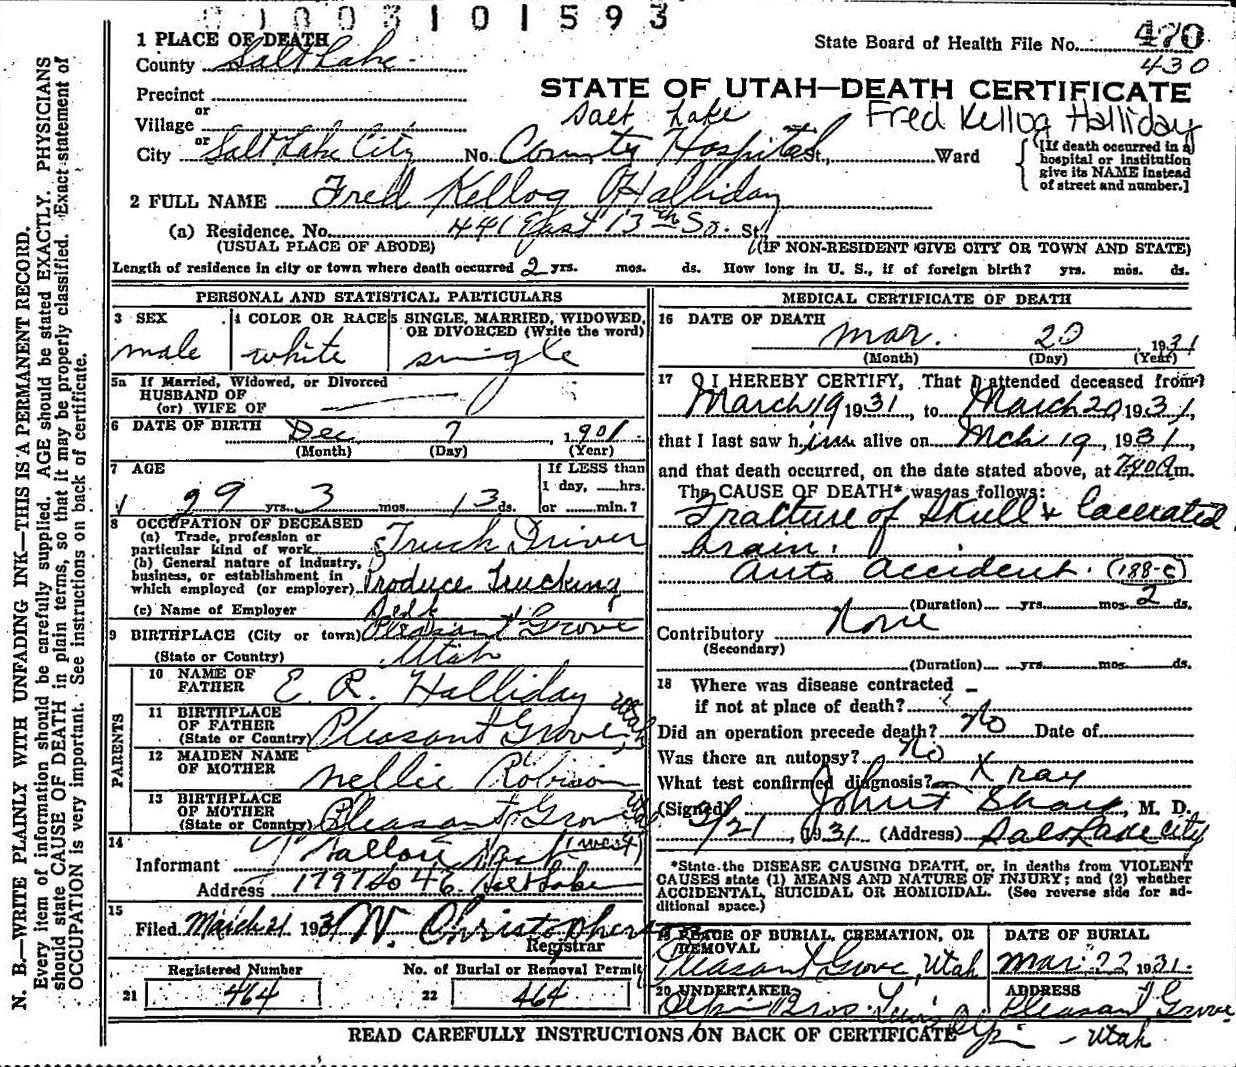 01003101593
1 PLACE OF DEATH
County Salt Lake
State Board of Health File No. 470
430
STATE OF UTAH—DEATH CERTIFICATE
Precinct
or
Village
Salt Lake
Fred Kellog Halliday
or
City Salt Lake City No. County Hospital St., Ward
[If death occurred in a hospital or institution give its NAME instead of street and number.]
2 FULL NAME Fred Kellog Halliday
(a) Residence. No. 441 East 13th So. St.
(USUAL PLACE OF ABODE) (IF NON-RESIDENT GIVE CITY OR TOWN AND STATE)
Length of residence in city or town where death occurred 2 yrs. mos. ds. How long in U. S., if of foreign birth? yrs. mos. ds.
PERSONAL AND STATISTICAL PARTICULARS
3 SEX
male
4 COLOR OR RACE
white
5 SINGLE, MARRIED, WIDOWED, OR DIVORCED (Write the word)
single
5a If Married, Widowed, or Divorced
HUSBAND OF
(or) WIFE OF
6 DATE OF BIRTH Dec 7, 1901
(Month) (Day) (Year)
7 AGE
29 yrs. 3 mos. 13 ds.
If LESS than
1 day, hrs.
or min.?
8 OCCUPATION OF DECEASED
(a) Trade, profession or
particular kind of work Truck Driver
(b) General nature of industry,
business, or establishment in
which employed (or employer) Produce Trucking
(c) Name of Employer Self
9 BIRTHPLACE (City or town) Pleasant Grove
(State or Country) Utah
PARENTS
10 NAME OF FATHER E. R. Halliday
11 BIRTHPLACE OF FATHER
(State or Country) Pleasant Grove, Utah
12 MAIDEN NAME OF MOTHER Nellie Robison
13 BIRTHPLACE OF MOTHER
(State or Country) Pleasant Grove Utah
14
Informant (west)
Address 1797 So 4 Salt Lake
15
Filed March 21 1931 N. Christopherson
Registrar
Registered Number
21 464
No. of Burial or Removal Permit
22 464
MEDICAL CERTIFICATE OF DEATH
16 DATE OF DEATH
Mar. 20, 1931
(Month) (Day) (Year)
17 I HEREBY CERTIFY, That I attended deceased from
March 19 1931, to March 20, 1931,
that I last saw him alive on Mch 19, 1931,
and that death occurred, on the date stated above, at m.
The CAUSE OF DEATH* was as follows:
Fracture of Skull & lacerated
brain.
Auto accident. (188-c)
(Duration) yrs. mos. 2 ds.
Contributory None
(Secondary)
(Duration) yrs. mos. ds.
18 Where was disease contracted
if not at place of death?
Did an operation precede death? No Date of
Was there an autopsy? No
What test confirmed diagnosis? X ray
(Signed) John Sharp, M. D.
3/21, 1931 (Address) Salt Lake City
*State the DISEASE CAUSING DEATH, or, in deaths from VIOLENT
CAUSES state (1) MEANS AND NATURE OF INJURY; and (2) whether
ACCIDENTAL, SUICIDAL OR HOMICIDAL. (See reverse side for ad-
ditional space.)
19 PLACE OF BURIAL, CREMATION, OR REMOVAL
Pleasant Grove, Utah
DATE OF BURIAL
Mar. 22 1931.
20 UNDERTAKER
Olpin Bros
ADDRESS
Pleasant Grove
Utah
READ CAREFULLY INSTRUCTIONS ON BACK OF CERTIFICATE
N. B.—WRITE PLAINLY WITH UNFADING INK—THIS IS A PERMANENT RECORD.
Every item of information should be carefully supplied. AGE should be stated EXACTLY. PHYSICIANS
should state CAUSE OF DEATH in plain terms, so that it may be properly classified. Exact statement of
OCCUPATION is very important. See instructions on back of certificate.